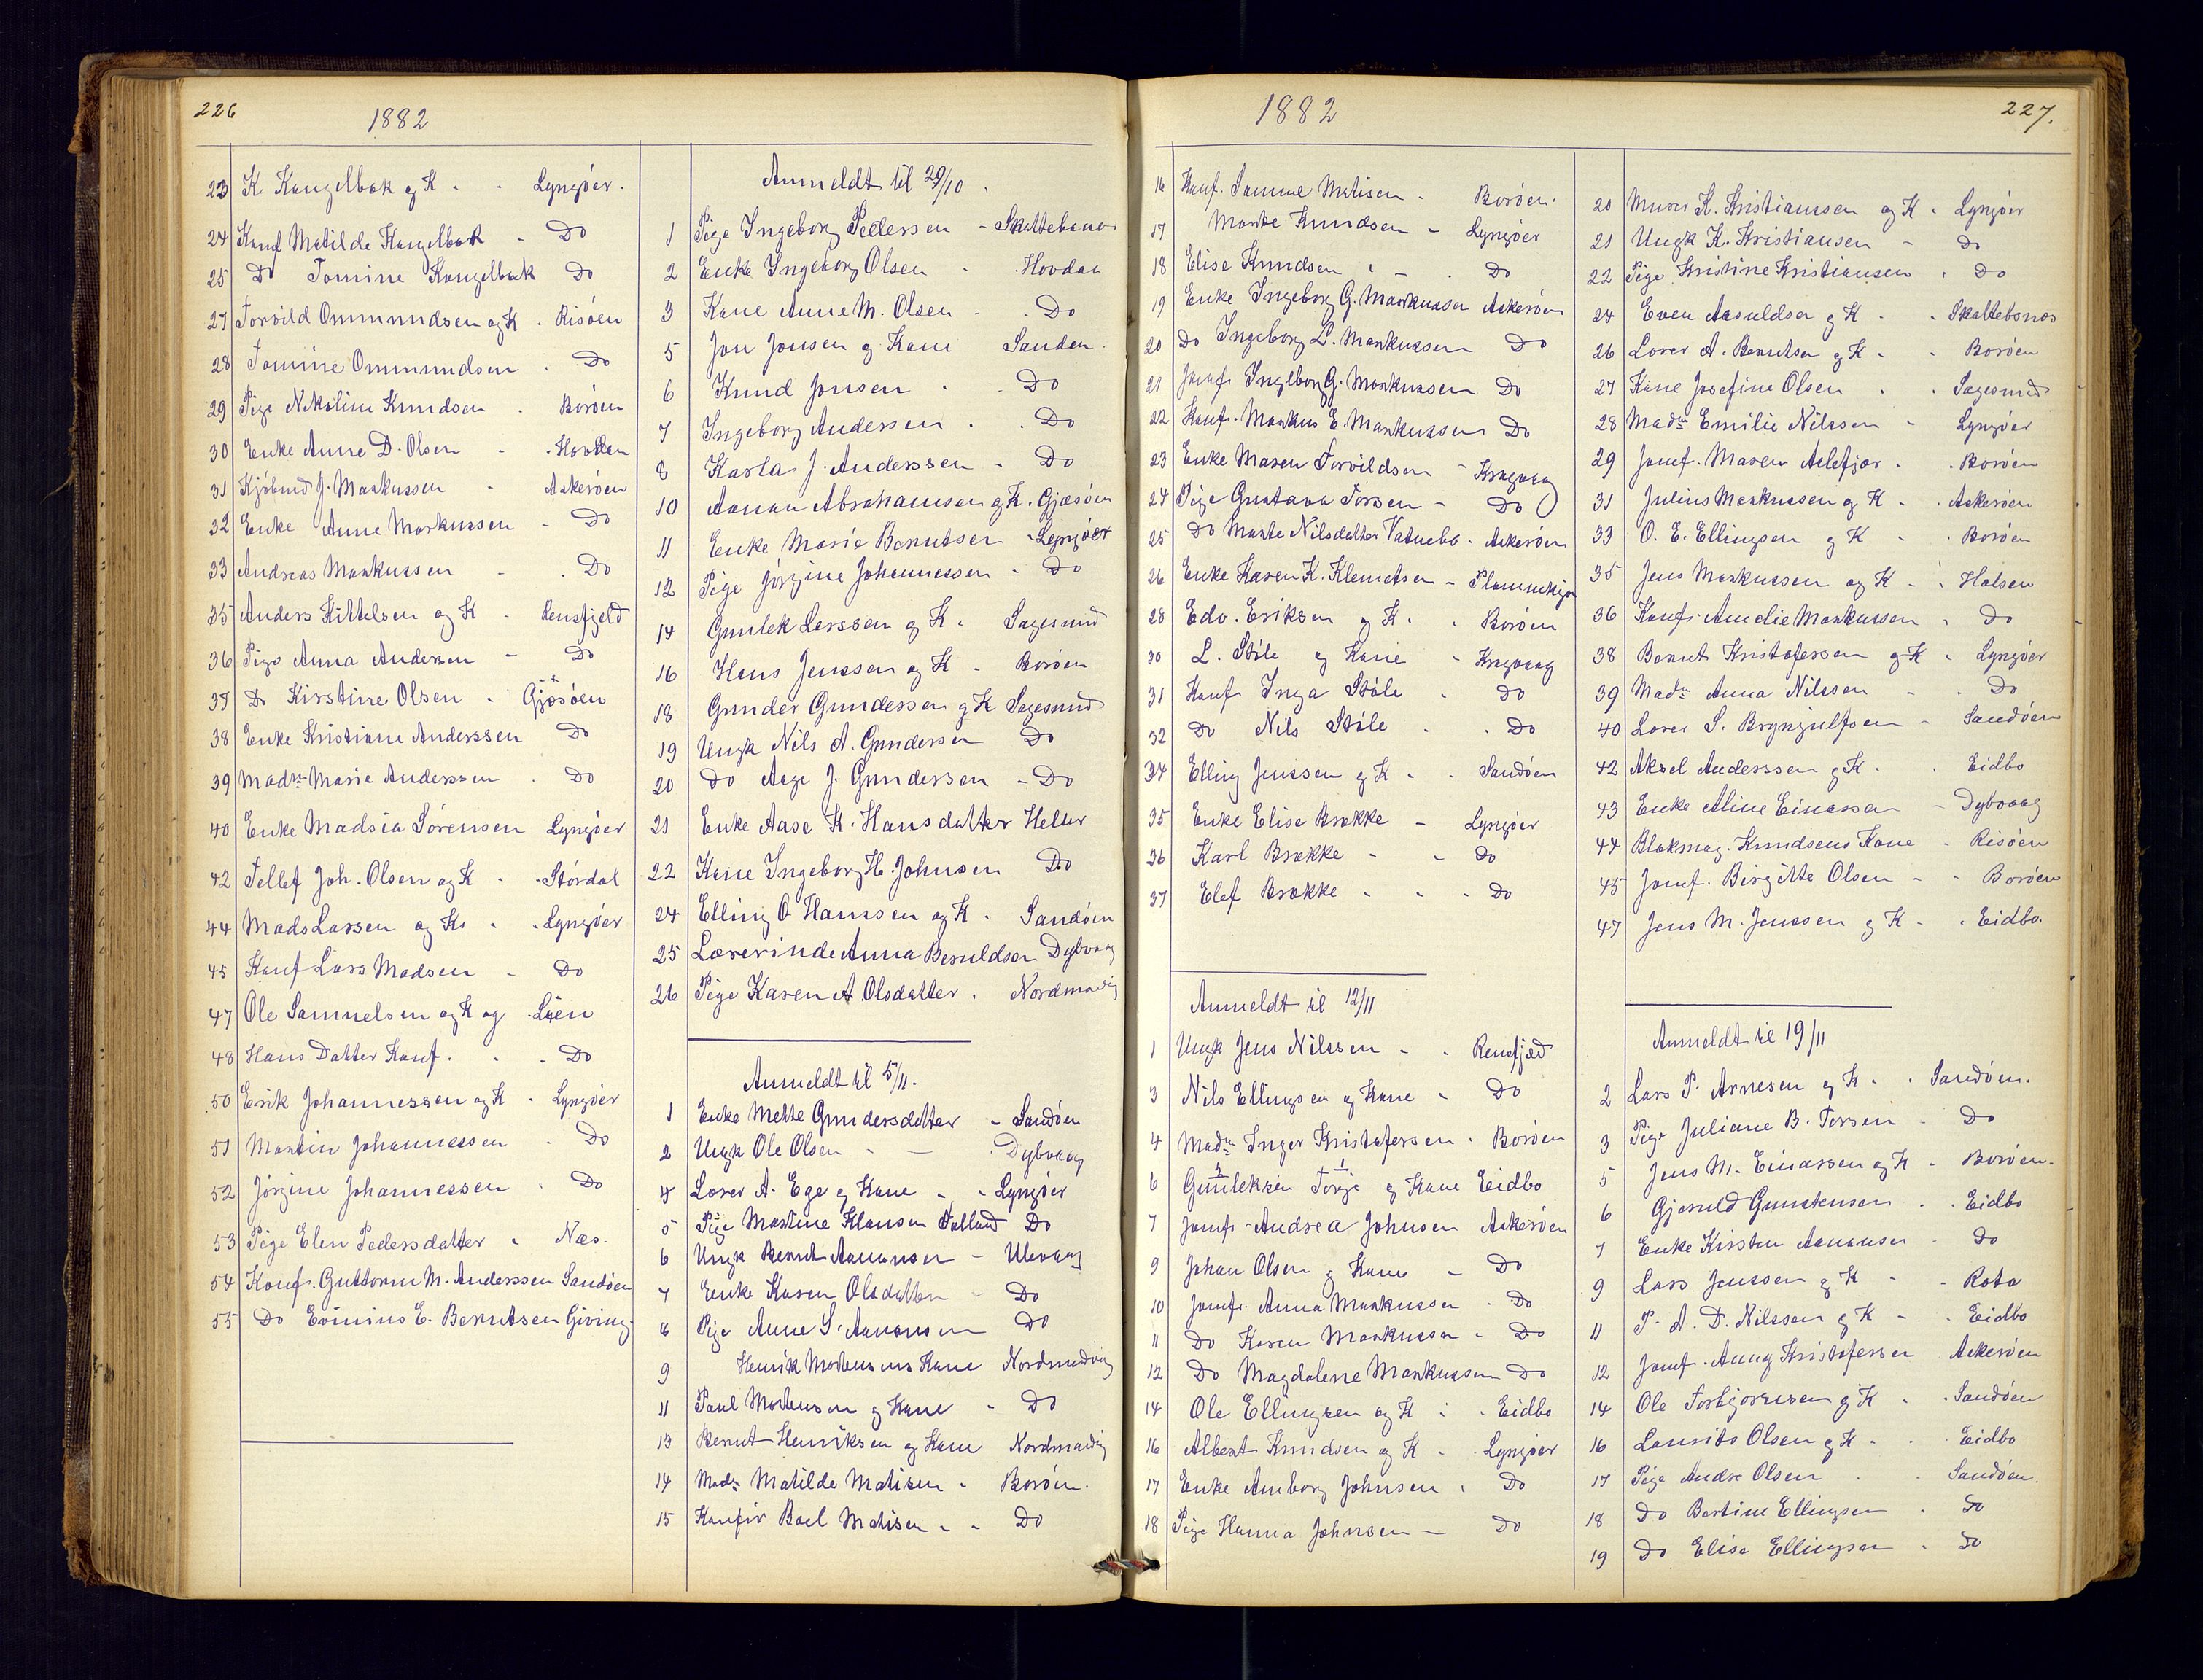 226
1882
23 K. Kangelbak og K - - Lyngöer.
24 Konf Matilde Kangelbak - Do
25 Do Tomine Kangelbak Do
27 Torvild Ommundsen og K. Risöen
28 Tomine Ommundsen . Do
29 Pige Nikoline Knudsen . Boröen
30 Enke Anne D. Olsen - . Hovdan
31 Kjöbmd J. Markussen - Askeröen
32 Enke Anne Markussen - Do
33 Andreas Markussen - . Do
35 Anders Kittelsen og K - Rensfjeld
36 Pige Anna Andersen - Do
37 Do Kirstine Olsen - Gjösöen
38 Enke Kristiane Anderssen Do
39 Madm Marie Anderssen . Do
40 Enke Madsia Sörensen Lyngöer
42 Tellef Joh. Olsen og K - . Stördal
44 Mads Lassen og K. - . Lyngöer
45 Konf Lars Madsen - Do
47 Ole Samuelsen og K og . Lien
48 Hans Datter Konf. - . Do
50 Erik Johannessen og K - Lyngöer
51 Martin Johannessen . Do
52 Jörgine Johannessen . Do
53 Pige Elen Pedersdatter - Næs.
54 Konf. Guttorm M. Anderssen Sandöen
55 Do Evinius E. Berntsen Giving.
Anmeldt til 29/10.
1 Pige Ingeborg Pedersen - Skattebona
2 Enke Ingeborg Olsen - . Hovdan
3 Kone Anne M. Olsen - . Do
5 Jon Jonsen og Kone Sanden.
6 Knud Jonsen . . Do
7 Ingeborg Andersen . . Do
8 Karla J. Anderssen - Do
10 Aanon Abrahamsen og K. Gjæsöen
11 Enke Marie Berntsen - Lyngöer
12 Pige Jörgine Johannessen - Do
14 Gunlek Larssen og K. Sagesund
16 Hans Jenssen og K - Boröen
18 Gunder Gunderssen og K Sagesund
19 Ungk Nils A. Gundersen Do
20 Do Aage J. Gundersen - Do
21 Enke Aase K. Hansdatter Heller
22 Kone Ingeborg H. Johnsen Do
24 Elling O Hansen og K. Sandöen
25 Lærerinde Anna Beruldsen Dybvaag
26 Pige Karen A Olsdatter . Nordmævig
Anmeldt til 5/11.
1 Enke Mette Gundersdatter - Sandöen
2 Ungk Ole Olsen - - . Dybvaag
4 Lærer A. Ege og Kone - - Lyngöer
5 Pige Martine Klausen Folland Do
6 Ungk Bernt Aanonsen - Ulevaag
7 Enke Karen Olsdatter - Do
8 Pige Anne S. Aanonsen Do
9 Henrik Mortensens Kone Nordmævig
11 Paul Mortensen og Kone - Do
13 Bernt Henriksen og Kone Nordmævig
14 Madm Matilde Matisen - Boröen.
15 Konfir Boel Matisen - - Do
1882
227.
16 Konf. Samuel Matisen - Boröen.
17 Marte Knudsen - Lyngöer
18 Elise Knudsen . - . Do
19 Enke Ingeborg G. Markussen Askeröen
20 Do Ingeborg L. Markussen Do
21 Jomf. Ingeborg G. Markussen Do
22 Konf. Markus E. Markussen Do
23 Enke Maren Torvildsen - Krogvaag
24 Pige Gustava Torsen - Do
25 Do Marte Nilsdatter Vatnebo - Askeröen
26 Enke Karen K. Klemetsen -
28 Edv. Eriksen og K. . Boröen
30 L. Stöle og Kone - Krogvaag
31 Konf. Inga Stöle . Do
32 Do Nils Stöle . . Do
34 Elling Jenssen og K - . Sandöen
35 Enke Elise Brække - Lyngöer
36 Karl Brække - - Do
37 Elef Brække - . - Do
Anmeldt til 12/11
1 Ungk Jens Nilssen - . Rensfjeld
3 Nils Ellingsen og Kone - Do
4 Madm Inger Kristofersen . Boröen
6 Gunleksen Torje og Kone Eidbo
7 Jomf. Andrea Johnsen Askeröen
9 Johan Olsen og Kone - Do
10 Jomfr. Anna Markussen . Do
11 Do Karen Markussen - Do
12 Do Magdalene Markussen Do
14 Ole Ellingsen og K : . Eidbo
16 Albert Knudsen og K - . Lyngöer
17 Enke Amborg Johnsen . Do
18 Pige Hanna Johnsen - Do
20 Murer K. Kristianssen og K. Lyngöer
21 Ungk K. Kristiansen - Do
22 Pige Kristine Kristiansen . Do
24 Even Aasuldsen og K - . Skattebonos
26 Lærer A. Berntsen og K - . Boröen
27 Kone Josefine Olsen . . Sagesund
28 Madm Emilie Nilssen - Lyngöer
29 Jomf. Maren Aslefjær - . Boröen
31 Julius Markussen og K - . Askeröen
33 O. E. Ellingsen og K - . Boröen
35 Jens Markussen og K - . Holsen
36 Konfr Amelie Markussen . Do
38 Bernt Kristofersen og K . Lyngöer
39 Madm Anna Nilssen - . Do
40 Lærer S. Brynjulfsen - Sandöen
42 Aksel Anderssen og K. . Eidbo
43 Enke Aline Einassen - Dybvaag
44 Blokmag. Knudsens Kone - Risöen
45 Jomf. Birgitte Olsen - - Boröen
47 Jens M. Jenssen og K - . Eidbo.
Anmeldt til 19/11
2 Lars P. Arnesen og K. . Sandöen.
3 Pige Juliane B. Torsen . Do
5 Jens M. Einassen og K - Boröen.
6 Gjeruld Gunstensen . . Eidbo
7 Enke Kirsten Aanonsen - Do
9 Lars Jenssen og K - - Rota
11 P. A. D. Nilssen og K - . Eidbo
12 Jomf. Anny Kristofersen Askeröen
14 Ole Torbjornsen og K - . Sandöen
16 Laurits Olsen og K - . Eidbo
17 Pige Andre Olsen . . Sandöen.
18 Do Bertine Ellingsen . Do
19 Do Elise Ellingsen . Do